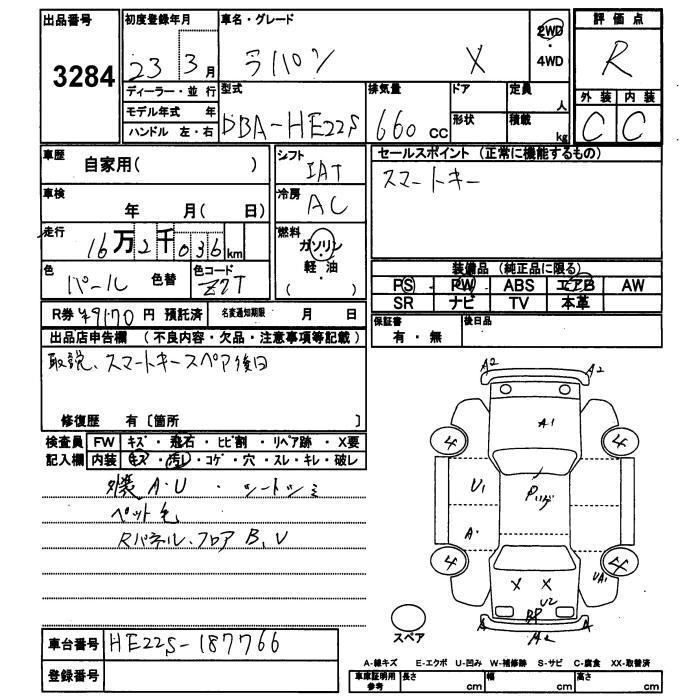 出品番号
3284
初度登録年月
23 3月
ディーラー・並行
モデル年式 年
ハンドル 左・右
車名・グレード
ラパン X
2WD
・
4WD
評価点
R
外装 内装
C C
型式
DBA-HE22S
排気量
660 CC
ドア
形状
定員
人
積載
kg
車歴
自家用( )
車検
年 月( 日)
走行
16万2千036km
色
パール 色替
色コード
Z7T
シフト
IAT
冷房
AC
燃料
ガソリン
軽・油
( )
セールスポイント (正常に機能するもの)
スマートキー
装備品 (純正品に限る)
PS PW ABS エアB AW
SR ナビ TV 本革
保証書
有・無
後日品
R券 ¥9170 円 預託済
名変通知期限 月 日
出品店申告欄 (不良内容・欠品・注意事項等記載)
取説、スマートキースペア後日
修復歴 有〔箇所 〕
検査員 FW キズ・飛石・ヒビ割・リペア跡・X要
記入欄 内装 キズ・汚レ・コゲ・穴・スレ・キレ・破レ
外装A・U ・シートシミ
ペット毛
Rパネル、フロアB、U
車台番号 HE22S-187766
登録番号
A2 A2
A1
4 4
U1
Pリング
A
4 4
X X
UA1
U2
BP
A A
A2
スペア
A-線キズ E-エクボ U-凹み W-補修跡 S-サビ C-腐食 XX-取替済
車庫証明用
参考
長さ cm 幅 cm 高さ cm